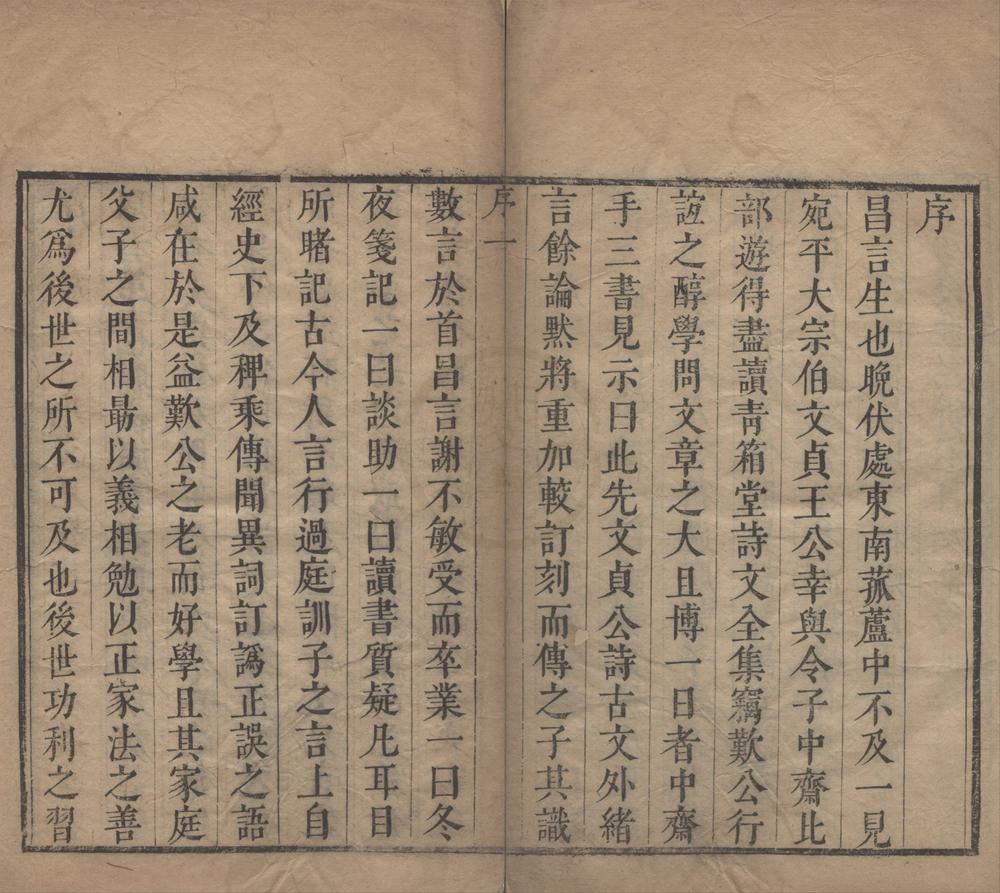 序
昌言生也晚伏處東南菰蘆中不及一見
宛平大宗伯文貞王公幸與令子中齋比
部遊得盡讀青箱堂詩文全集竊歎公行
誼之醇學問文章之大且博一日者中齋
手三書見示曰此先文貞公詩古文外緒
言餘論黙將重加較訂刻而傳之子其識
序一
數言於首昌言謝不敏受而卒業一曰冬
夜箋記一曰談助一曰讀書質疑凡耳目
所睹記古今人言行過庭訓子之言上自
經史下及稗乘傳聞異詞訂譌正誤之語
咸在於是益歎公之老而好學且其家庭
父子之間相勗以義相勉以正家法之善
尤爲後世之所不可及也後世功利之習